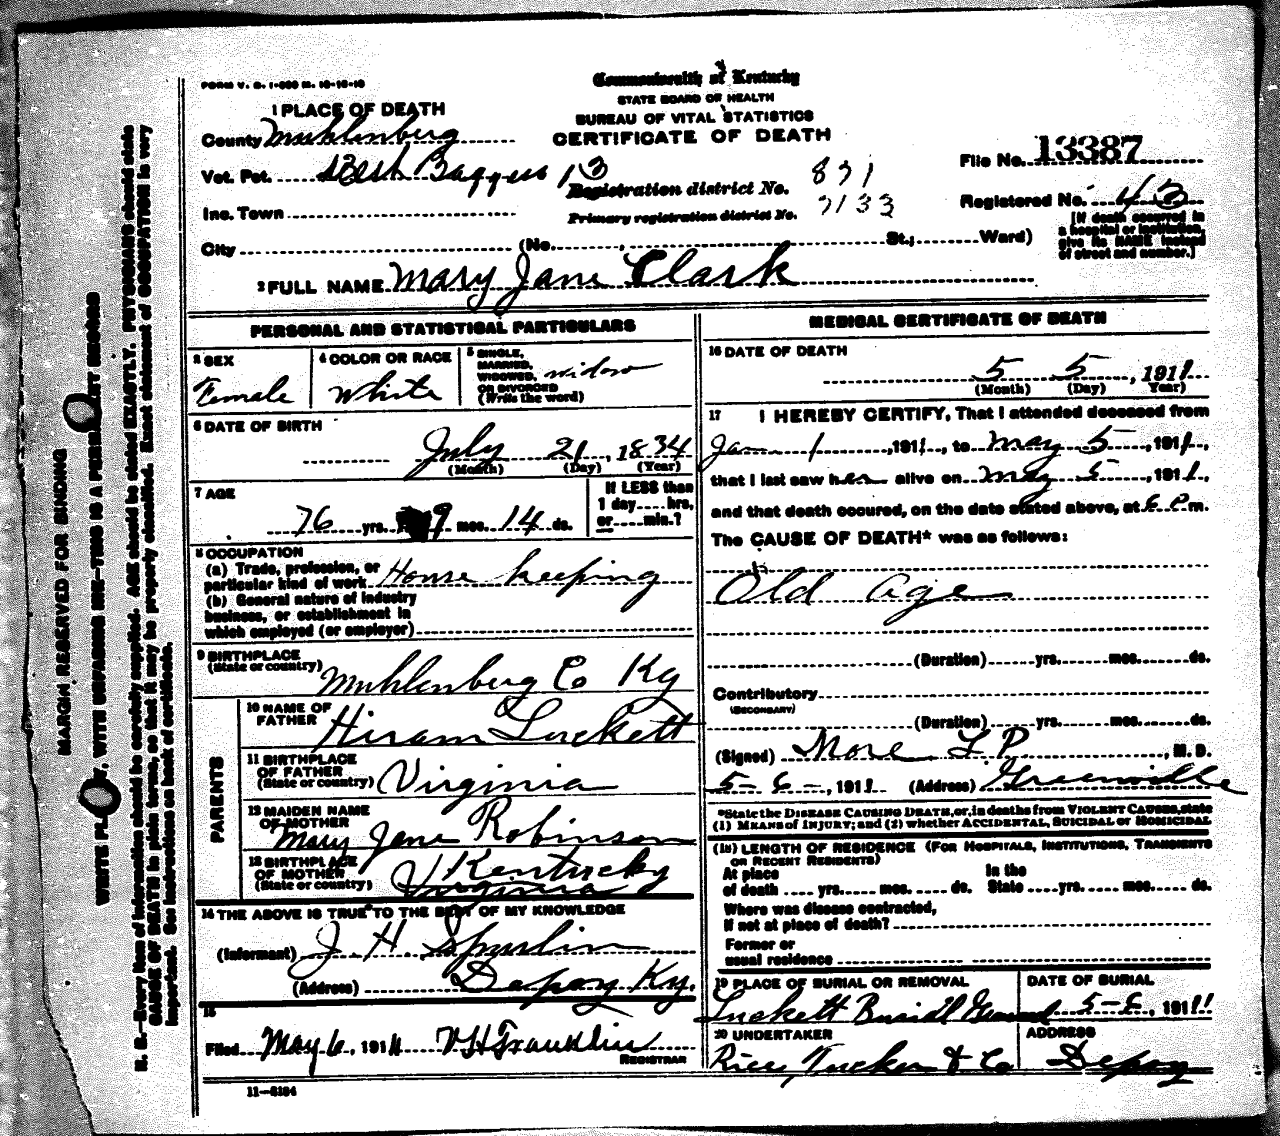 FORM V. S. 1-500 M. 10-10-10
Commonwealth of Kentucky
STATE BOARD OF HEALTH
BUREAU OF VITAL STATISTICS
CERTIFICATE OF DEATH
1 PLACE OF DEATH
County Muhlenberg
Vot. Pct. West Baggess 13
Inc. Town
City (No. , St.; Ward)
Registration district No. 871
Primary registration district No. 7133
File No. 13387
Registered No. 43
[If death occurred in
a hospital or institution,
give its NAME instead
of street and number.]
2 FULL NAME Mary Jane Clark
PERSONAL AND STATISTICAL PARTICULARS
3 SEX
Female
4 COLOR OR RACE
White
5 SINGLE,
MARRIED,
WIDOWED, widow
OR DIVORCED
(Write the word)
6 DATE OF BIRTH
July 21, 1834
(Month) (Day) (Year)
7 AGE
76 yrs. 9 mos. 14 ds.
If LESS than
1 day hrs.
or min.?
8 OCCUPATION
(a) Trade, profession, or
particular kind of work House keeping
(b) General nature of industry
business, or establishment in
which employed (or employer)
9 BIRTHPLACE
(State or country) Muhlenberg Co Ky
PARENTS
10 NAME OF
FATHER Hiram Luckett
11 BIRTHPLACE
OF FATHER
(State or country) Virginia
12 MAIDEN NAME
OF MOTHER
Mary Jane Robinson
13 BIRTHPLACE
OF MOTHER Kentucky
(State or country) Virginia
14 THE ABOVE IS TRUE TO THE BEST OF MY KNOWLEDGE
(Informant) J. H Spurlin
(Address) Depoy Ky.
15
Filed May 6, 1911 V H Franklin
REGISTRAR
11—5184
MEDICAL CERTIFICATE OF DEATH
16 DATE OF DEATH
5 5, 1911
(Month) (Day) Year)
17 I HEREBY CERTIFY, That I attended deceased from
Jan 1, 1911, to May 5, 1911,
that I last saw her alive on May 5, 1911,
and that death occured, on the date stated above, at 6 P m.
The CAUSE OF DEATH* was as follows:
Old age
(Duration) yrs. mos. ds.
Contributory
(SECONDARY)
(Duration) yrs. mos. ds.
(Signed) More L P., M. D.
5-6-, 1911 (Address) Greenville
*State the DISEASE CAUSING DEATH, or, in deaths from VIOLENT CAUSES, state
(1) MEANS of INJURY; and (2) whether ACCIDENTAL, SUICIDAL or HOMICIDAL
(18) LENGTH OF RESIDENCE (FOR HOSPITALS, INSTITUTIONS, TRANSIENTS
OR RECENT RESIDENTS)
At place In the
of death yrs. mos. ds. State yrs. mos. ds.
Where was disease contracted,
If not at place of death?
Former or
usual residence
19 PLACE OF BURIAL OR REMOVAL
Luckett Buriel Ground
DATE OF BURIAL
5-6, 1911
20 UNDERTAKER
Rice, Tucker & Co
ADDRESS
Depoy
MARGIN RESERVED FOR BINDING
WRITE PLAINLY, WITH UNFADING INK—THIS IS A PERMANENT RECORD
N. B.—Every item of information should be carefully supplied. AGE should be stated EXACTLY. PHYSICIANS should state
CAUSE OF DEATH in plain terms, so that it may be properly classified. Exact statement of OCCUPATION is very
important. See instructions on back of certificate.